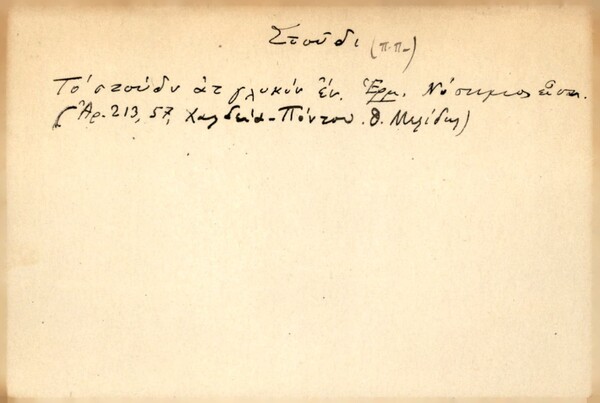 Στούδι (π.π.-)
Τό στούδν ἀτ γλυκύν ἔν. Ἑρμ. Νόστιμος εἶσαι.
(Ἀρ. 213, 57, Χαλδεία-Πόντου. Θ. Μελίδης)